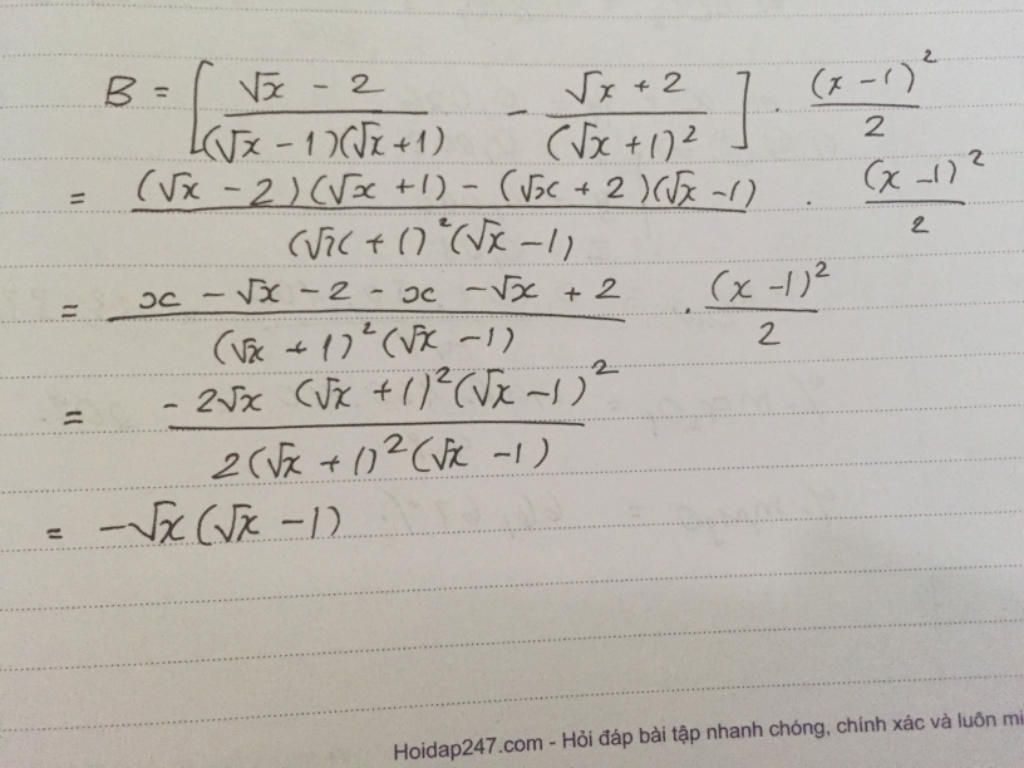 B = [ (√x - 2)/((√x - 1)(√x + 1)) - (√x + 2)/((√x + 1)²) ] . (x - 1)²/2
= ((√x - 2)(√x + 1) - (√x + 2)(√x - 1))/((√x + 1)²(√x - 1)) . (x - 1)²/2
= (x - √x - 2 - x - √x + 2)/((√x + 1)²(√x - 1)) . (x - 1)²/2
= (-2√x (√x + 1)²(√x - 1)²)/(2(√x + 1)²(√x - 1))
= -√x(√x - 1)
Hoidap247.com - Hỏi đáp bài tập nhanh chóng, chính xác và luôn mi